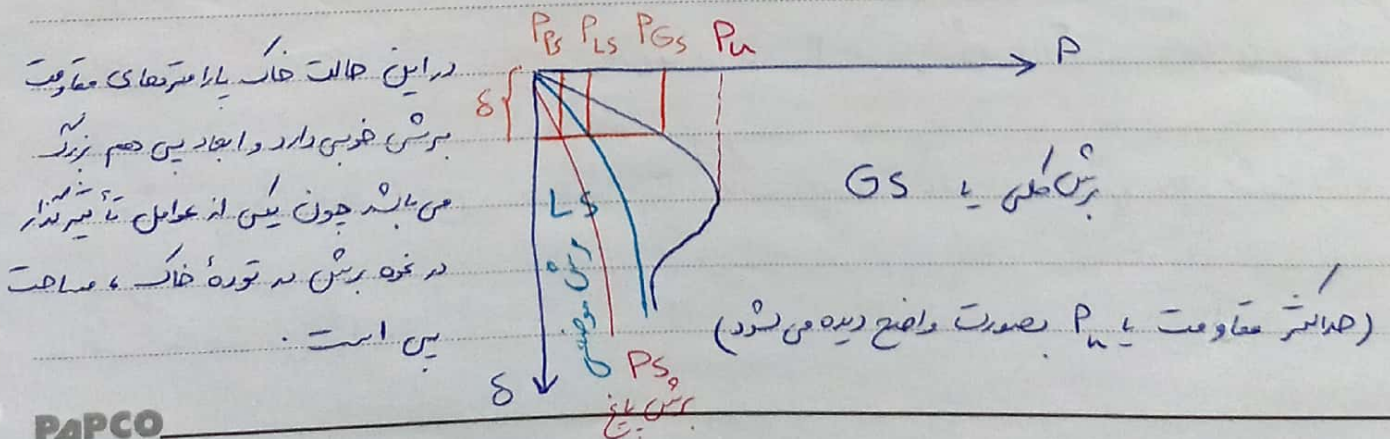 P_PS P_LS P_GS P_u P
در این حالت خاک پارامترهای مقاومت
برشی خوبی دارد و ابعاد پی هم بزرگ
می باشد چون یکی از عوامل تأثیرگذار
در نحوه برش در تودهٔ خاک ، مساحت
پی است .
δ
LS
برش موضعی
PS
δ
برش کلی یا GS
(حداکثر مقاومت یا P_u بصورت واضح دیده می شود)
PAPCO